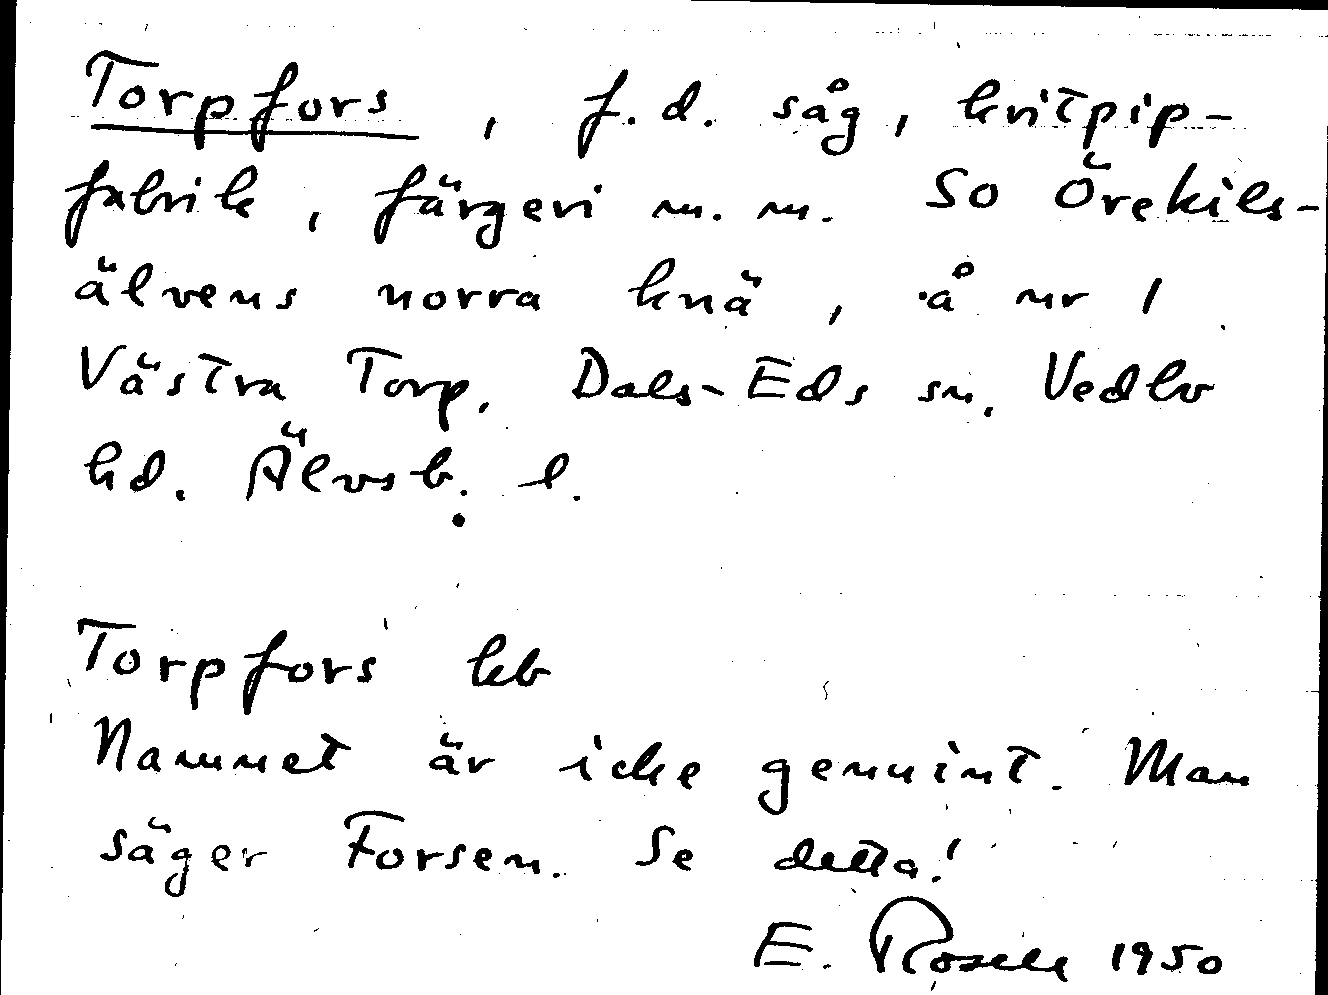 Torpfors, f.d. såg, kritpip-
fabrik, färgeri m.m. SO Örekils-
älvens norra knä, å nr 1
Västra Torp. Dals-Eds sn, Vedbo
hd. Älvsb. l.
Torpfors kb
Namnet är icke genuint. Man
säger Forsen. Se detta!
E. Rosell 1950